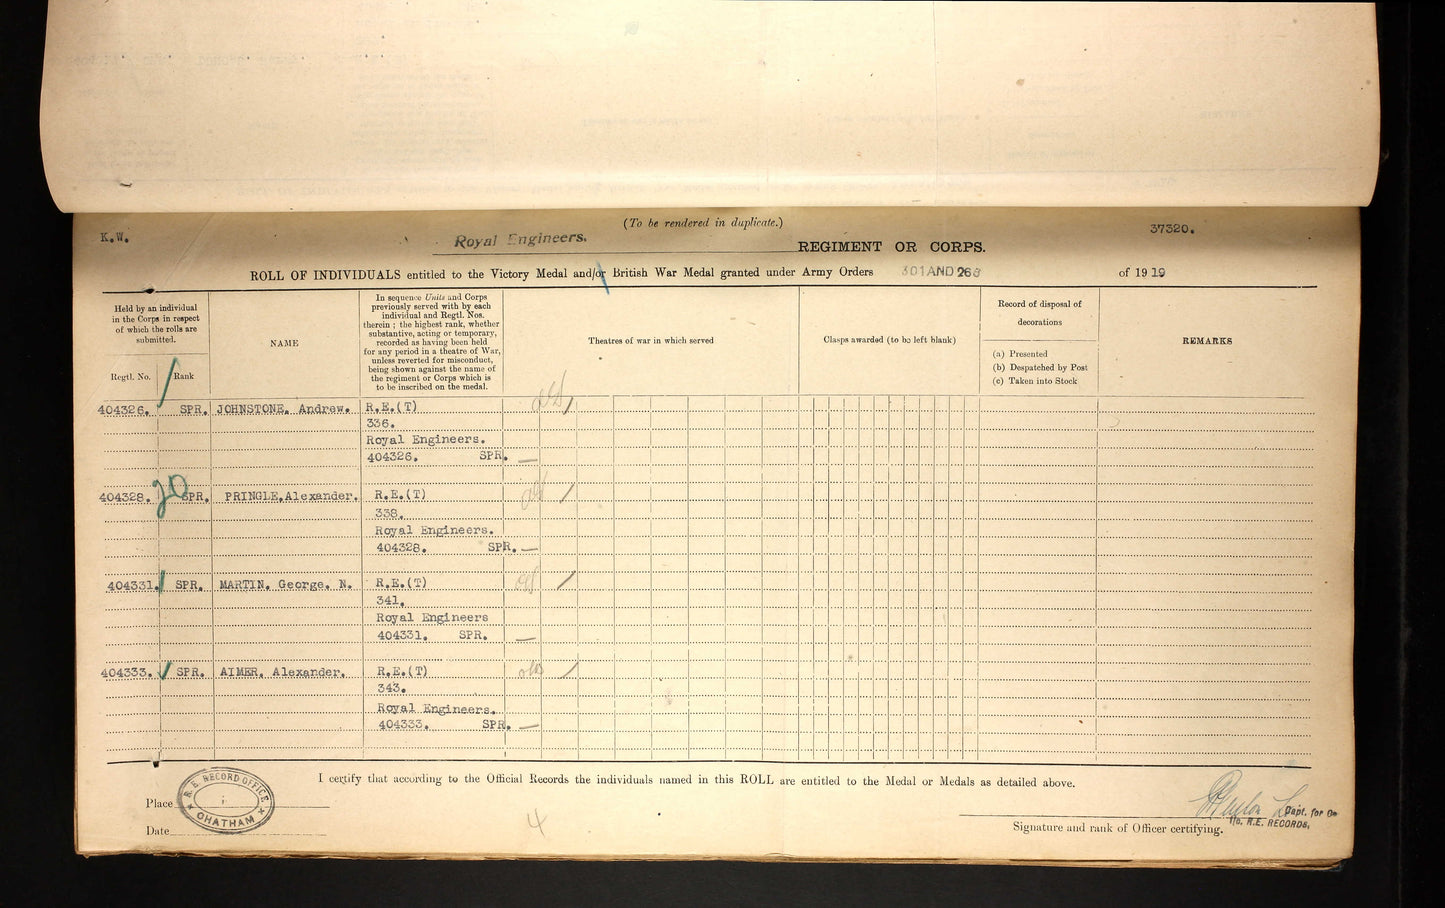 (To be rendered in duplicate.)
K.W. Royal Engineers. REGIMENT OR CORPS. 37320.
ROLL OF INDIVIDUALS entitled to the Victory Medal and/or British War Medal granted under Army Orders 301 AND 266 of 1919
Held by an individual
in the Corps in respect
of which the rolls are
submitted.
Regtl. No. Rank
NAME
In sequence Units and Corps
previously served with by each
individual and Regtl. Nos.
therein ; the highest rank, whether
substantive, acting or temporary,
recorded as having been held
for any period in a theatre of War,
unless reverted for misconduct,
being shown against the name of
the regiment or Corps which is
to be inscribed on the medal.
Theatres of war in which served
Clasps awarded (to be left blank)
Record of disposal of
decorations
(a) Presented
(b) Despatched by Post
(c) Taken into Stock
REMARKS
404326. SPR. JOHNSTONE. Andrew. R.E.(T)
336.
Royal Engineers.
404326. SPR.
20
404328. SPR. PRINGLE.Alexander. R.E.(T)
338.
Royal Engineers.
404328. SPR.
404331. SPR. MARTIN. George. N. R.E.(T)
341.
Royal Engineers
404331. SPR.
404333. SPR. AIMER. Alexander. R.E.(T)
343.
Royal Engineers.
404333. SPR.
I certify that according to the Official Records the individuals named in this ROLL are entitled to the Medal or Medals as detailed above.
Place
R. E. RECORD OFFICE
CHATHAM
Date
4
Capt. for
i/c. R.E. RECORDS,
Signature and rank of Officer certifying.